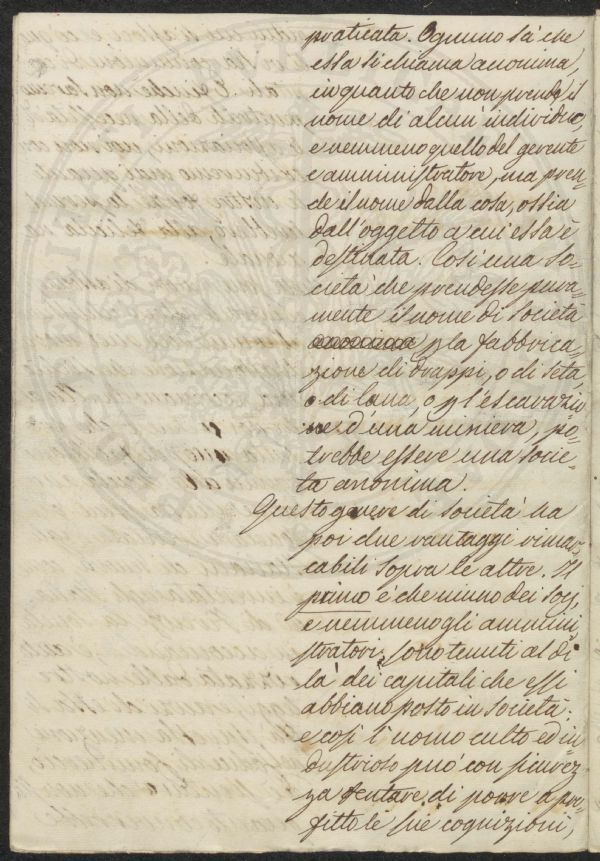 praticata. Ognuno sà che
essa si chiama anonima,
in quanto che non prende il
nome di alcun' individuo,
e nemmeno quello del gerente
e amministratore, ma pren=
de il nome dalla cosa, ossia
dall'oggetto a cui essa è
destinata. Così una so=
cietà che prendesse pura=
mente il nome di società
anonima p la fabbrica=
zione di drappi, o di seta,
o di lana, o p l'escavazio
ne d'una miniera, po=
trebbe essere una socie=
tà anonima.
Questo genere di società ha
poi due vantaggi rimar=
cabili sopra le altre. Il
primo è che niuno dei socj,
e nemmeno gli ammini
stratori, sono tenuti al di
là dei capitali che essi
abbiano posto in società:
e così l'uomo culto ed in
dustrioso può con sicurez=
za tentare di porre a pro=
fitto le sue cognizioni,